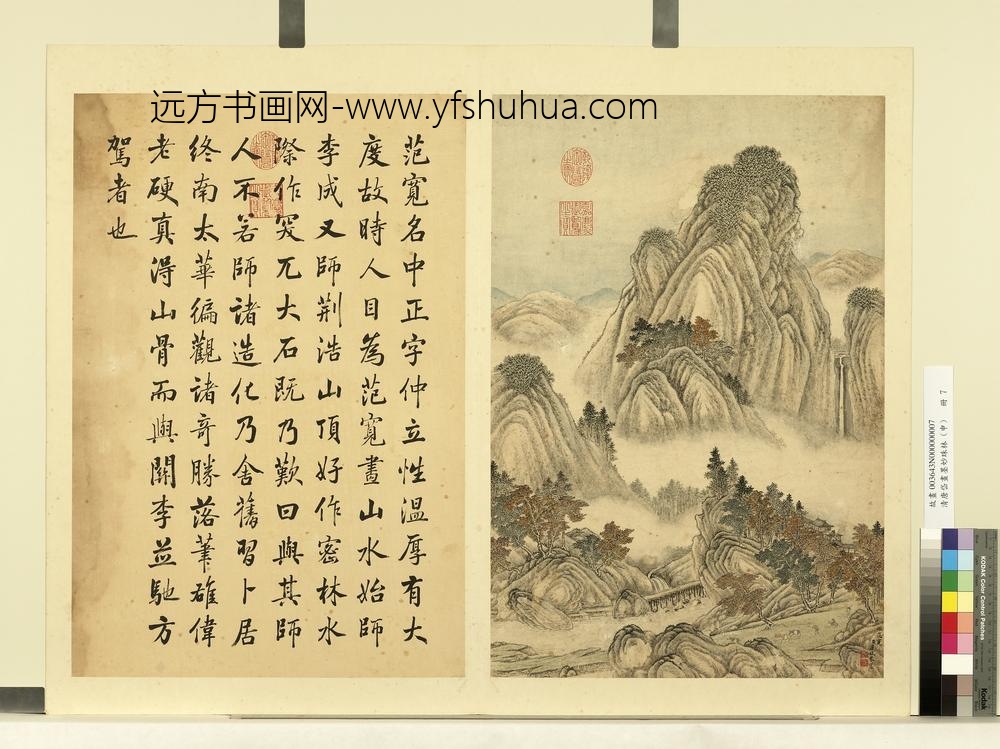 远方书画网-www.yfshuhua.com
范寬名中正字仲立性温厚有大
度故時人目為范寬畫山水始師
李成又師荆浩山頂好作密林水
際作突兀大石既乃歎曰與其師
人不若師諸造化乃舍舊習卜居
終南太華徧觀諸奇勝落筆雄偉
老硬真得山骨而與關李並馳方
駕者也
故畫003643N000000007
清唐岱畫墨妙珠林(申) 冊 7
KODAK Color Control Patches
Kodak